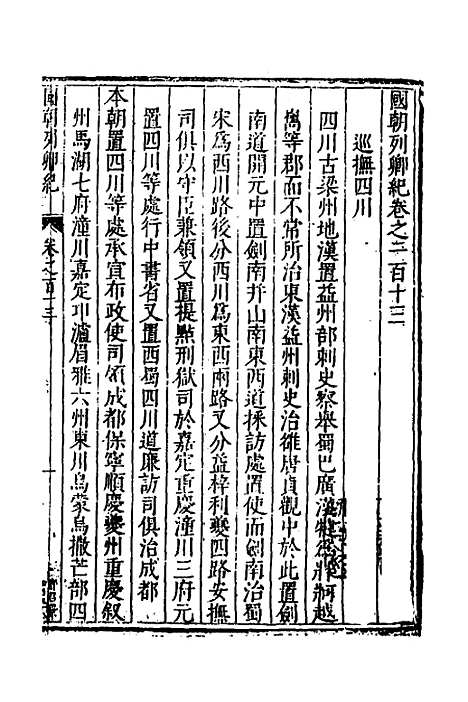 國朝列卿紀卷之一百十三
巡撫四川
四川古梁州地漢置益州部刺史察舉蜀巴廣漢犍爲牂牁越
嶲等郡而不常所治東漢益州刺史治雒唐貞觀中於此置劍
南道開元中置劍南并山南東西道採訪處置使而劍南治蜀
宋爲西川路後分西川爲東西兩路又分益梓利夔四路安撫
司俱以守臣兼領又置提點刑獄司於嘉定重慶潼川三府元
置四川等處行中書省又置西蜀四川道廉訪司俱治成都
本朝置四川等處承宣布政使司領成都保寧順慶夔州重慶叙
州馬湖七府潼川嘉定卭瀘眉雅六州東川烏蒙烏撒芒部四
國朝列卿紀
卷之一百十三
一